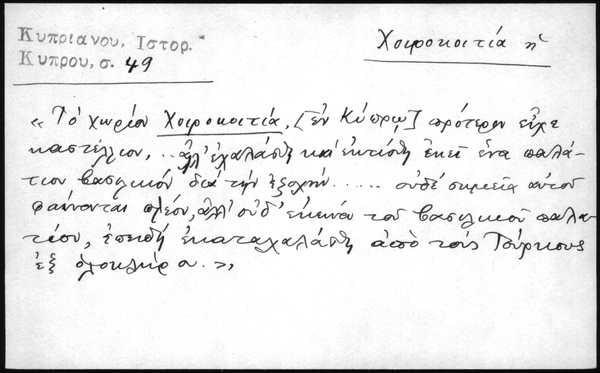 Κυπριανου, Ιστορ.
Κυπρου, σ. 49
Χοιροκοιτία ἡ
« Τὸ χωρίον Χοιροκοιτία, [ἐν Κύπρῳ] πρότερον εἶχε
καστέλλιον, .. ἀλλ' ἐχαλάσθη καὶ ἐκτίσθη ἐκεῖ ἕνα παλά-
τιον βασιλικὸν διὰ τὴν ἐξοχήν ..... οὐδὲ σημεῖα αὐτοῦ
φαίνονται πλέον, ἀλλ' οὐδ' ἐκεινά τοῦ βασιλικοῦ παλα-
τίου, ἐπειδὴ ἐκαταχαλάσθη ἀπὸ τοὺς Τούρκους
ἐξ ὁλοκλήρου. »